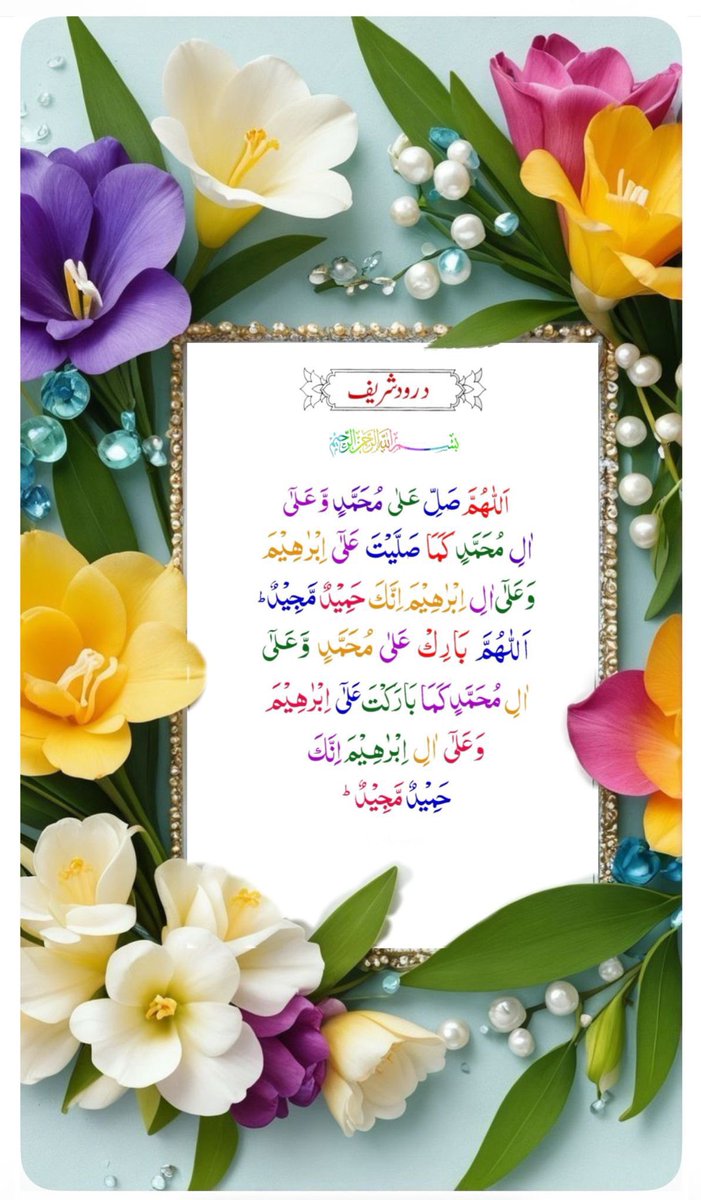 درود شریف
بِسْمِ اللهِ الرَّحْمٰنِ الرَّحِيْمِ
اَللّٰهُمَّ صَلِّ عَلٰى مُحَمَّدٍ وَّعَلٰٓى
اٰلِ مُحَمَّدٍ كَمَا صَلَّيْتَ عَلٰٓى اِبْرٰهِيْمَ
وَعَلٰٓى اٰلِ اِبْرٰهِيْمَ اِنَّكَ حَمِيْدٌ مَّجِيْدٌ ؕ
اَللّٰهُمَّ بَارِكْ عَلٰى مُحَمَّدٍ وَّعَلٰٓى
اٰلِ مُحَمَّدٍ كَمَا بَارَكْتَ عَلٰٓى اِبْرٰهِيْمَ
وَعَلٰٓى اٰلِ اِبْرٰهِيْمَ اِنَّكَ
حَمِيْدٌ مَّجِيْدٌ ؕ